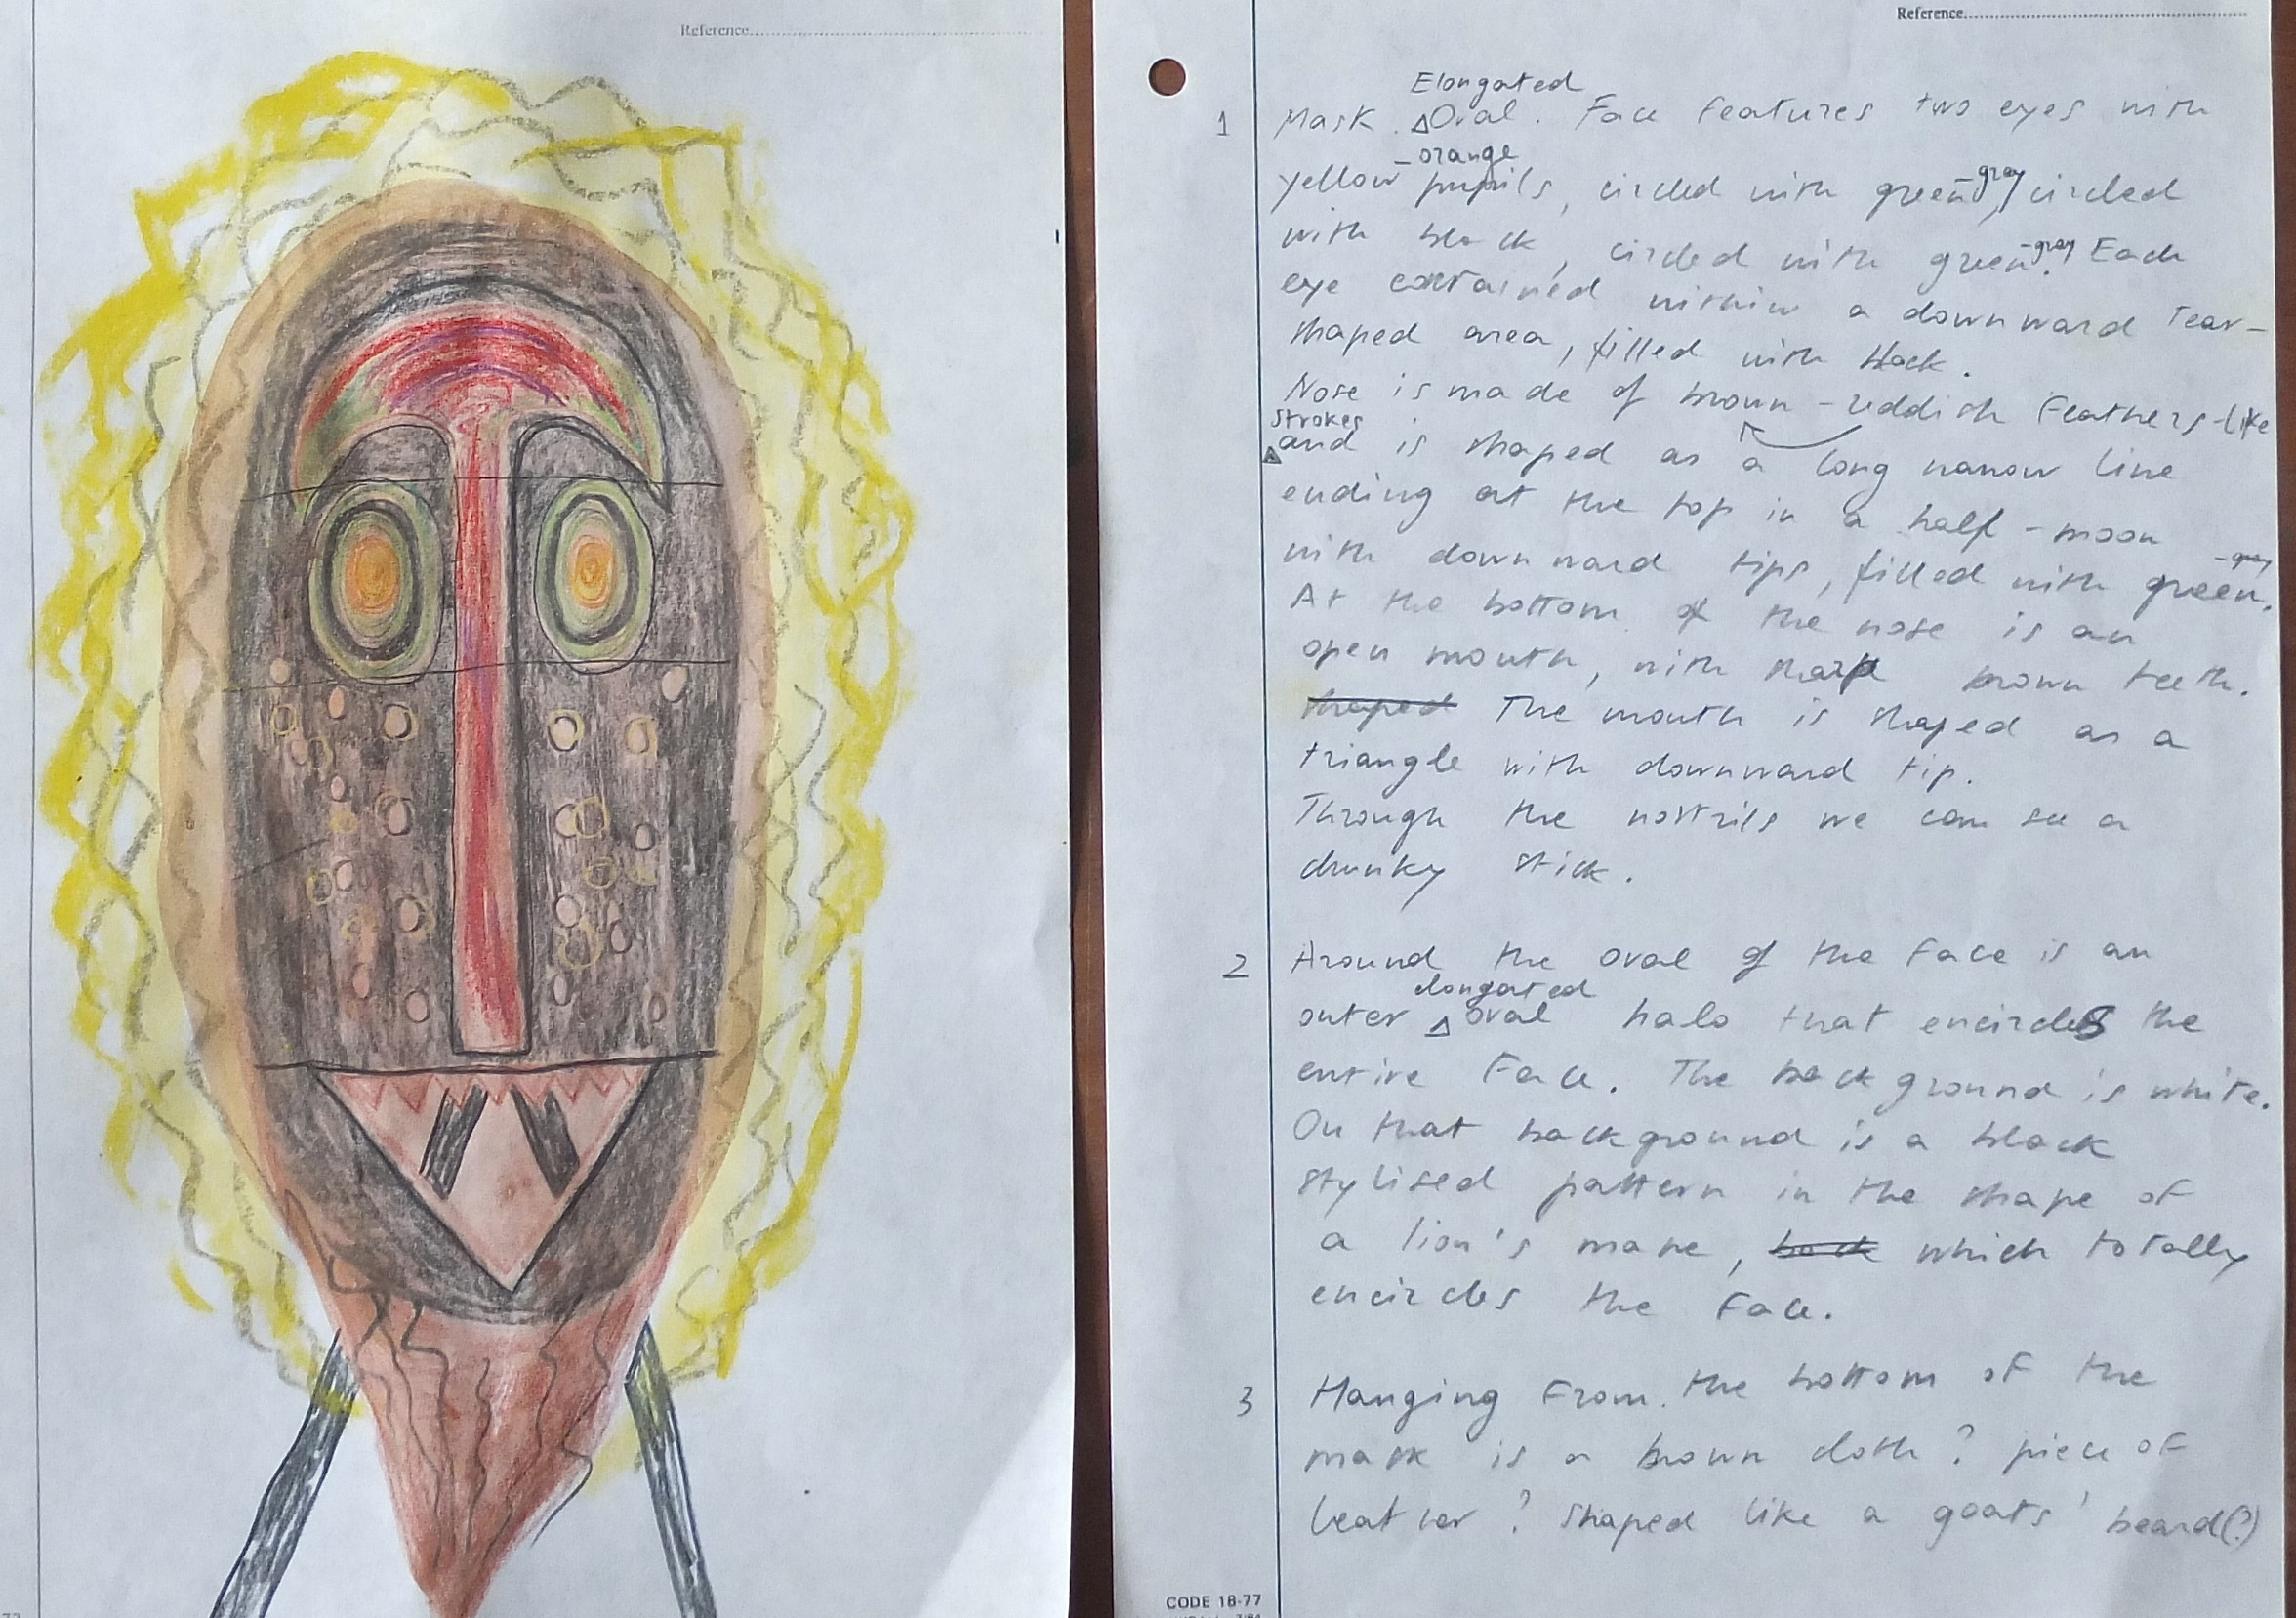 Reference
Reference
Elongated
1 Mask. Oval. Face features two eyes with
-orange
yellow pupils, circled with green-gray, circled
with black, circled with green-gray. Each
eye contained within a downward tear-
shaped area, filled with black.
Nose is made of brown-reddish feathers-like
strokes
and is shaped as a long narrow line
ending at the top in a half-moon
with downward tips, filled with green-gray.
At the bottom of the nose is an
open mouth, with sharp brown teeth.
shaped The mouth is shaped as a
triangle with downward tip.
Through the nostrils we can see a
chunky stick.
2 Around the oval of the face is an
elongated
outer oval halo that encircles the
entire face. The background is white.
On that background is a black
stylised pattern in the shape of
a lion's mane, which totally
encircles the face.
3 Hanging from the bottom of the
mask is a brown cloth? piece of
leather? Shaped like a goats' beard(?)
CODE 18-77